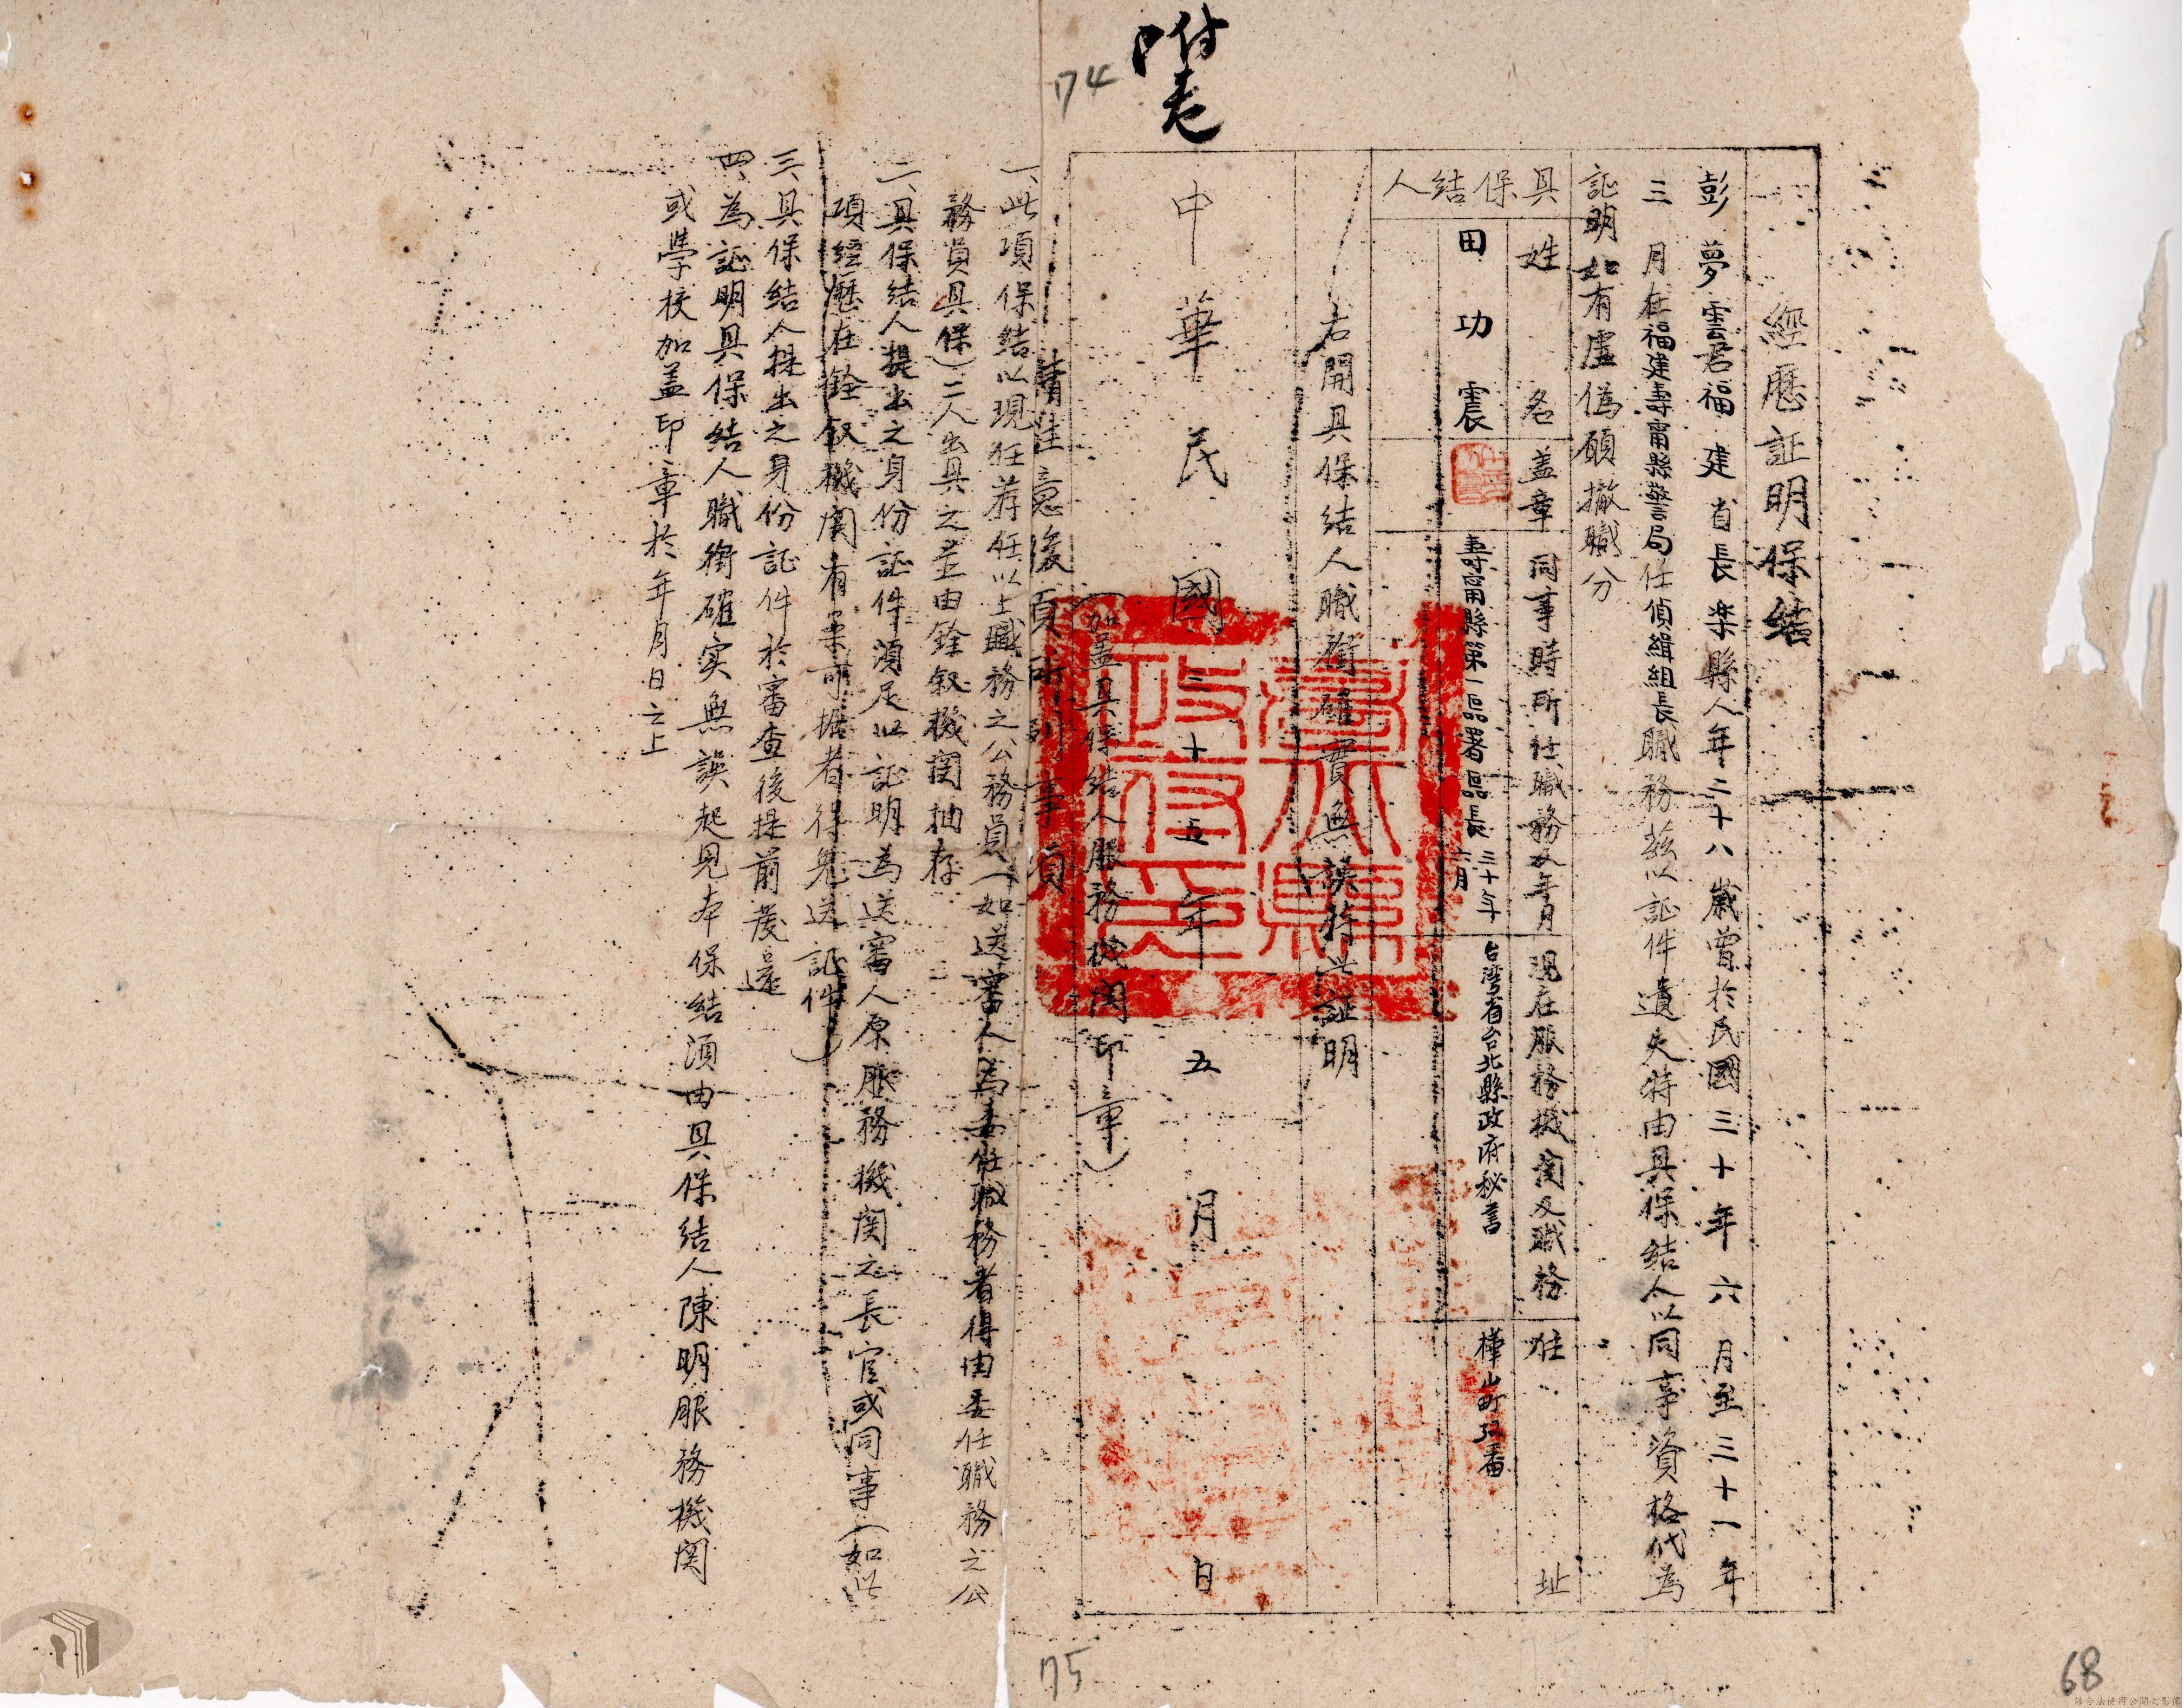 附卷
74
經歷証明保結
彭夢雲君福建省長楽縣人年二十八歲曾於民國三十年六月至三十一年
三月在福建壽甯縣警局任偵緝組長職務茲以証件遺失特由具保結人以同事資格代為
証明如有虛偽願撤職分
具保結人
姓名
蓋章
同事時所任職務及年月
現在服務機関及職務
住址
田功震
壽甯縣第一區署區長三十年六月
台灣省台北縣政府秘書
樺山町
番
右開具保結人職銜確實無誤特此証明
（加蓋具保結人服務機関印章）
中華民國三十五年五月日
請注意後頁所列事項
一、此項保結以現任荐任以上職務之公務員（如送審人為委任職務者得由委任職務之公
務員具保）二人出具之並由銓叙機関抽存
二、具保結人提出之身份証件須足以証明為送審人原服務機関之長官或同事（如此
項經歷在銓叙機関有案可據者得免送証件）
三、具保結人提出之身份証件於審查後提前發還
四、為証明具保結人職銜確实無誤起見本保結須由具保結人陳明服務機関
或學校加蓋印章於年月日之上
75
68
請合法使用公開之影像